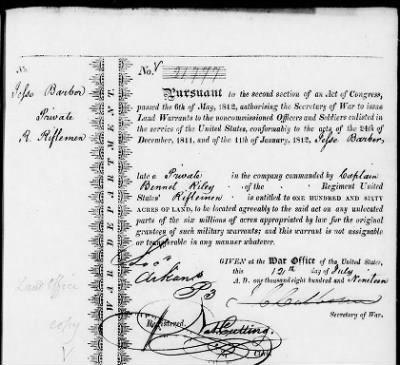 No.
Jesse Barber
Private
R. Riflemen
Land Office
copy
WAR DEPARTMENT.
No. 21777
Pursuant to the second section of an Act of Congress,
passed the 6th of May, 1812, authorising the Secretary of War to issue
Land Warrants to the noncommissioned Officers and Soldiers enlisted in
the service of the United States, conformably to the acts of the 24th of
December, 1811, and of the 11th of January, 1812, Jesse Barber,
late a Private in the company commanded by Captain
Bennet Riley of the Regiment United
States' Riflemen is entitled to ONE HUNDRED AND SIXTY
ACRES OF LAND, to be located agreeably to the said act on any unlocated
parts of the six millions of acres appropriated by law for the original
grantees of such military warrants; and this warrant is not assignable
or transferable in any manner whatever.
GIVEN at the War Office of the United States,
this 12th day of July
A. D. one thousand eight hundred and Nineteen
Arkans
J C Calhoun
Secretary of War.
Registered.
Nat. Cutting
Clk.